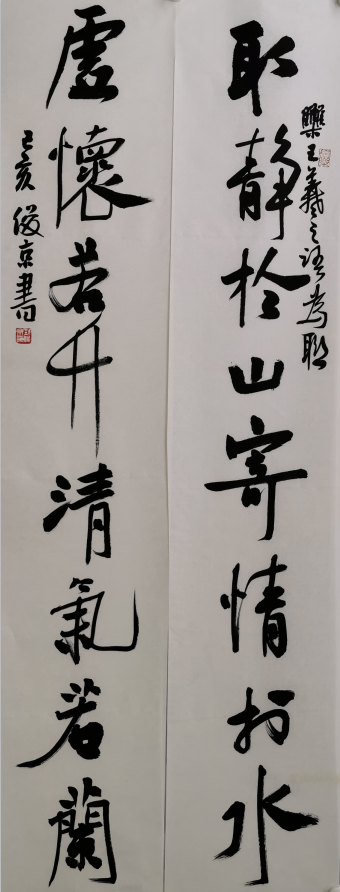 雧王羲之語為聯
取靜於山寄情於水
虛懷若竹清氣若蘭
己亥俊京書